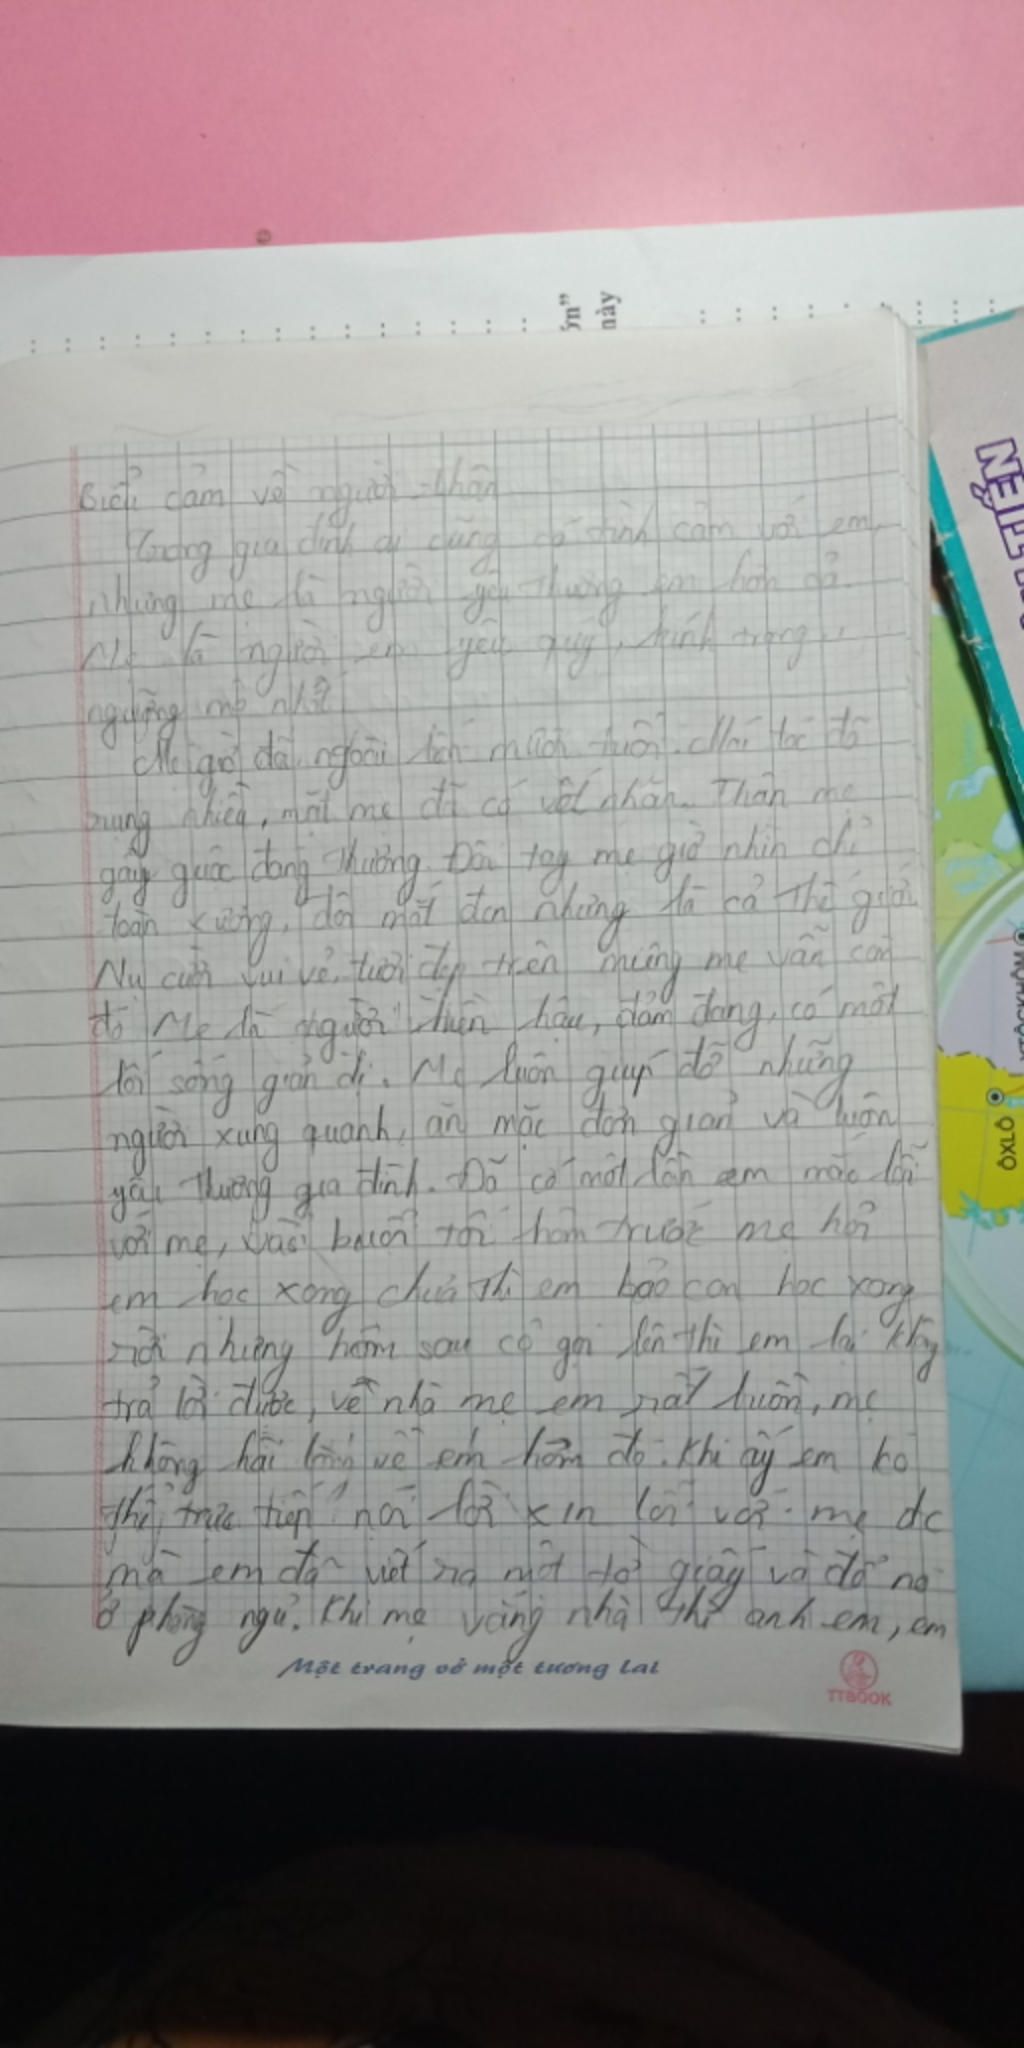 ớn"
này
Biểu cảm về người thân
Trong gia đình ai cũng có tình cảm với em,
nhưng mẹ là người yêu thương em hơn cả.
Mẹ là người em yêu quý, kính trọng,
ngưỡng mộ nhất
Mẹ giờ đã ngoài mươi tuổi. Mái tóc đã
rụng nhiều, mắt mẹ đã có vết nhăn. Thân mẹ
gầy guộc đáng thương. Đôi tay mẹ giờ nhìn chỉ
toàn xương, đôi mắt đen nhưng là cả thế giới.
Nụ cười vui vẻ, tươi đẹp trên miệng mẹ vẫn còn
đó Mẹ là người hiền hậu, đảm đang, có một
lối sống giản dị. Mẹ luôn giúp đỡ những
người xung quanh, ăn mặc đơn giản và luôn
yêu thương gia đình. Đã có một lần em mắc lỗi
với mẹ, vào buổi tối hôm trước mẹ hỏi
em học xong chưa thì em bảo con học xong
rồi nhưng hôm sau cô gọi lên thì em lại không
trả lời được, về nhà mẹ em rất buồn, mẹ
không hài lòng về em hôm đó. Khi ấy em ko
thể trực tiếp nói lời xin lỗi với mẹ đc
mà em đã viết ra một tờ giấy và để nó
ở phòng ngủ. Khi mẹ vắng nhà thì anh em, em
Một trang vở một tương lai
TTBOOK
ÔXLÔ